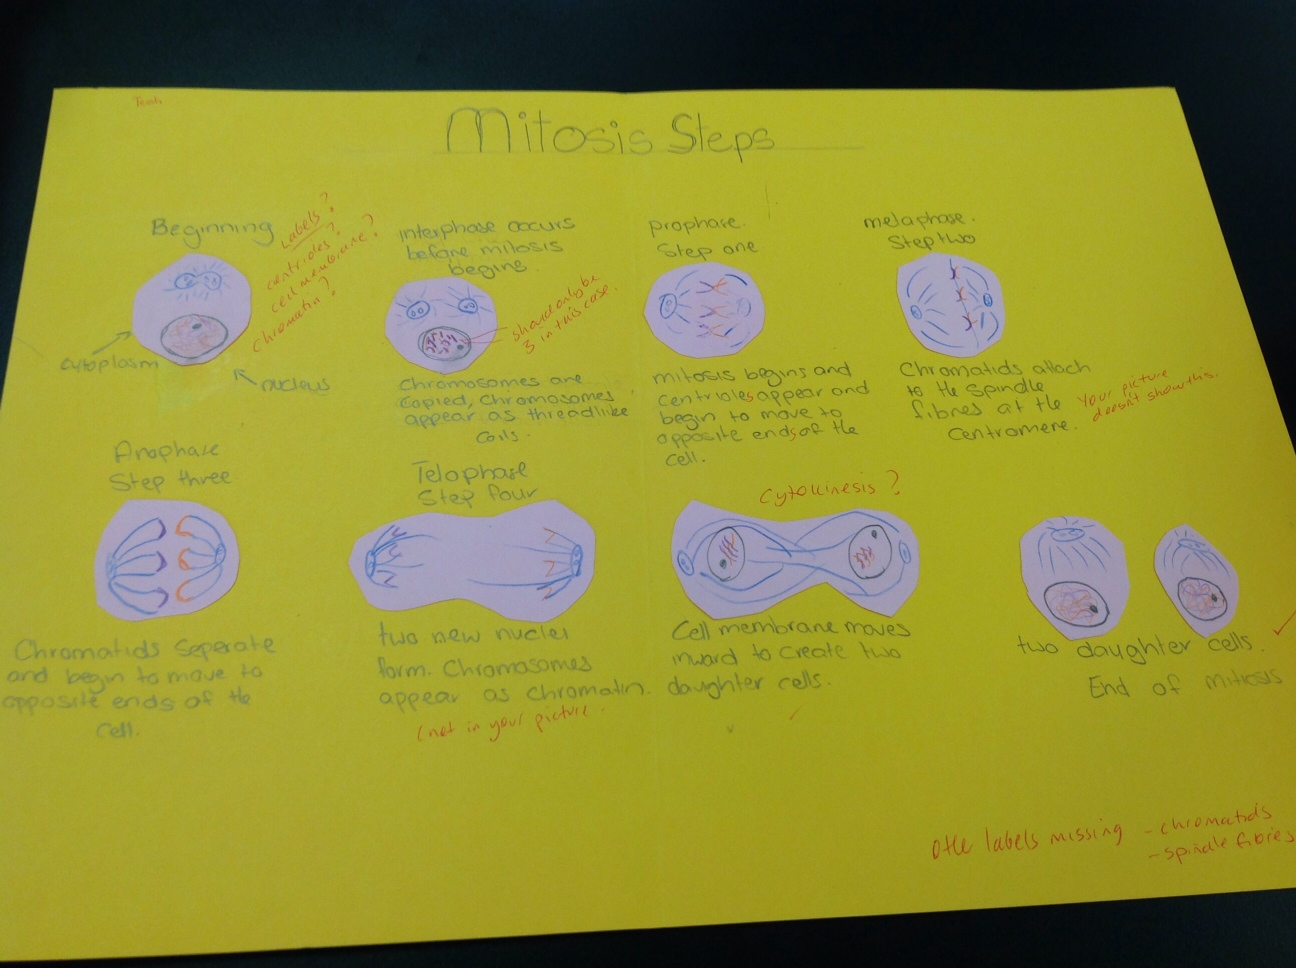 Mitosis Steps
Beginning
Labels?
centrioles?
cell membrane?
chromatin?
cytoplasm
nucleus
interphase occurs
before mitosis
begins.
should only be
3 in this case.
Chromosomes are
copied, Chromosomes
appear as threadlike
coils.
prophase.
Step one
mitosis begins and
centrioles appear and
begin to move to
opposite ends of the
cell.
metaphase.
Step two
Chromatids attach
to the spindle
fibres at the
centromere.
Your picture
doesn't show this.
Anaphase
Step three
Chromatids seperate
and begin to move to
opposite ends of the
cell.
Telophase
Step four
two new nuclei
form. Chromosomes
appear as chromatin.
(not in your picture.
Cytokinesis?
Cell membrane moves
inward to create two
daughter cells.
two daughter cells.
End of mitiosis
labels missing - chromatids
- spindle fibries